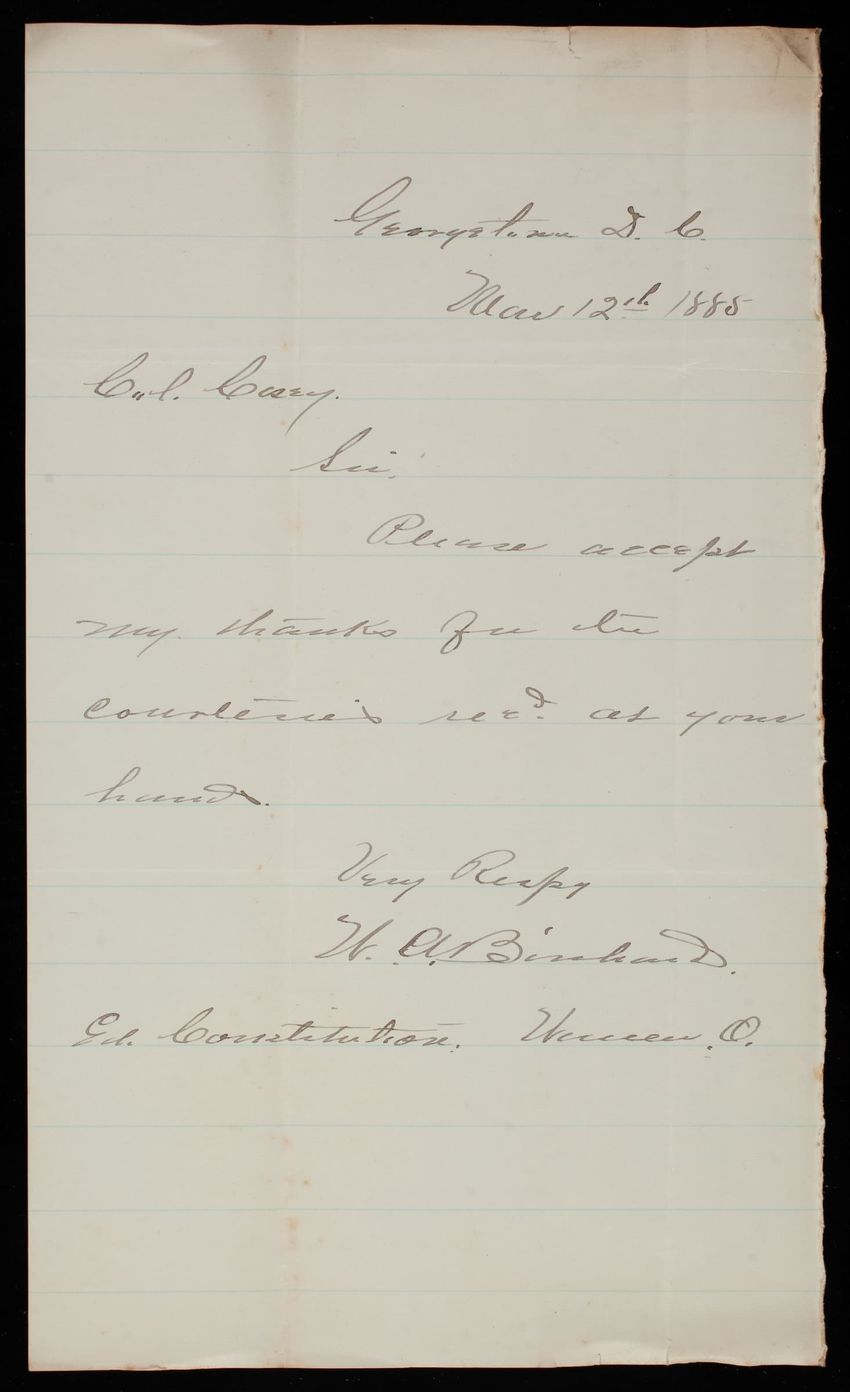 Georgetown D. C.
Mar 12th 1885
Col. Casey.
Sir,
Please accept
my thanks for the
courtesies recd. at your
hands.
Very Respy
W. A.
Ed. Constitution. Warren, O.